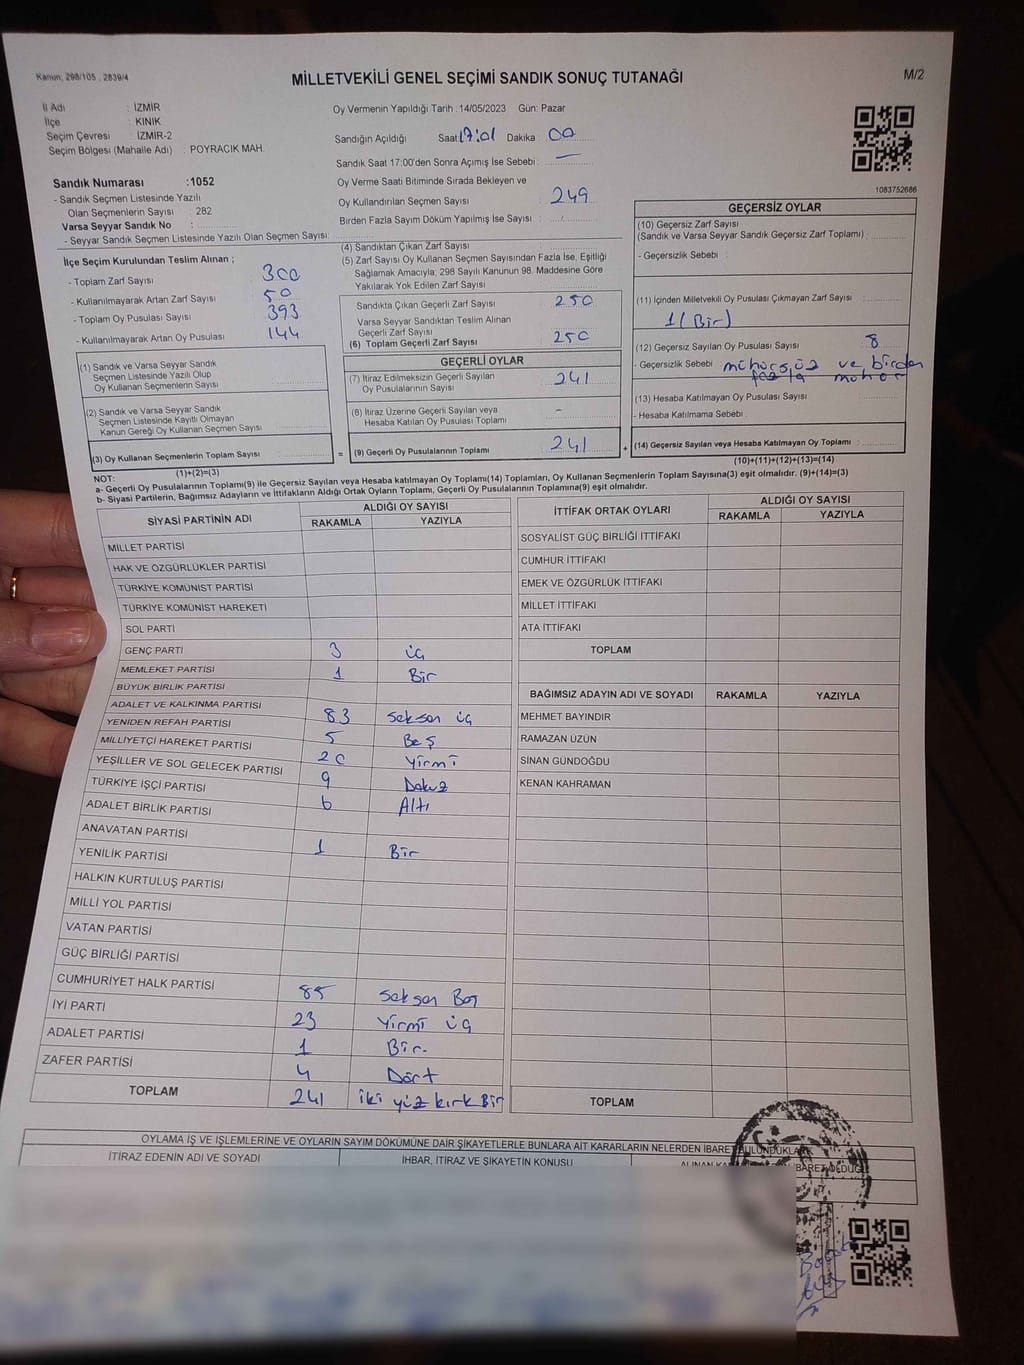 Kanun, 298/105 , 2839/4
MİLLETVEKİLİ GENEL SEÇİMİ SANDIK SONUÇ TUTANAĞI
M/2
İl Adı : İZMİR
İlçe : KINIK
Seçim Çevresi : İZMİR-2
Seçim Bölgesi (Mahalle Adı) : POYRACIK MAH.
Sandık Numarası :1052
- Sandık Seçmen Listesinde Yazılı
Olan Seçmenlerin Sayısı : 282
Varsa Seyyar Sandık No :
- Seyyar Sandık Seçmen Listesinde Yazılı Olan Seçmen Sayısı:
Oy Vermenin Yapıldığı Tarih :14/05/2023 Gün: Pazar
Sandığın Açıldığı Saat 17:01 Dakika : 00
Sandık Saat 17:00'den Sonra Açımış İse Sebebi : —
Oy Verme Saati Bitiminde Sırada Bekleyen ve
Oy Kullandırılan Seçmen Sayısı : 249
Birden Fazla Sayım Döküm Yapılmış İse Sayısı :
1083752686
İlçe Seçim Kurulundan Teslim Alınan ;
- Toplam Zarf Sayısı : 300
- Kullanılmayarak Artan Zarf Sayısı : 50
- Toplam Oy Pusulası Sayısı : 393
- Kullanılmayarak Artan Oy Pusulası : 144
(1) Sandık ve Varsa Seyyar Sandık
Seçmen Listesinde Yazılı Olup
Oy Kullanan Seçmenlerin Sayısı :
(2) Sandık ve Varsa Seyyar Sandık
Seçmen Listesinde Kayıtlı Olmayan
Kanun Gereği Oy Kullanan Seçmen Sayısı :
(3) Oy Kullanan Seçmenlerin Toplam Sayısı :
(1)+(2)=(3)
(4) Sandıktan Çıkan Zarf Sayısı :
(5) Zarf Sayısı Oy Kullanan Seçmen Sayısından Fazla İse, Eşitliği
Sağlamak Amacıyla, 298 Sayılı Kanunun 98. Maddesine Göre
Yakılarak Yok Edilen Zarf Sayısı :
Sandıkta Çıkan Geçerli Zarf Sayısı : 250
Varsa Seyyar Sandıktan Teslim Alınan
Geçerli Zarf Sayısı :
(6) Toplam Geçerli Zarf Sayısı : 250
GEÇERLİ OYLAR
(7) İtiraz Edilmeksizin Geçerli Sayılan
Oy Pusulalarının Sayısı : 241
(8) İtiraz Üzerine Geçerli Sayılan veya
Hesaba Katılan Oy Pusulası Toplamı : -
= (9) Geçerli Oy Pusulalarının Toplamı : 241 +
GEÇERSİZ OYLAR
(10) Geçersiz Zarf Sayısı
(Sandık ve Varsa Seyyar Sandık Geçersiz Zarf Toplamı) :
- Geçersizlik Sebebi :
(11) İçinden Milletvekili Oy Pusulası Çıkmayan Zarf Sayısı :
1 (Bir)
(12) Geçersiz Sayılan Oy Pusulası Sayısı : 8
- Geçersizlik Sebebi : mühürsüz ve birden
fazla mühür
(13) Hesaba Katılmayan Oy Pusulası Sayısı :
- Hesaba Katılmama Sebebi :
(14) Geçersiz Sayılan veya Hesaba Katılmayan Oy Toplamı :
(10)+(11)+(12)+(13)=(14)
NOT:
a- Geçerli Oy Pusulalarının Toplamı(9) ile Geçersiz Sayılan veya Hesaba katılmayan Oy Toplamı(14) Toplamları, Oy Kullanan Seçmenlerin Toplam Sayısına(3) eşit olmalıdır. (9)+(14)=(3)
b- Siyasi Partilerin, Bağımsız Adayların ve İttifakların Aldığı Ortak Oyların Toplamı, Geçerli Oy Pusulalarının Toplamına(9) eşit olmalıdır.
SİYASİ PARTİNİN ADI
ALDIĞI OY SAYISI
RAKAMLA YAZIYLA
MİLLET PARTİSİ
HAK VE ÖZGÜRLÜKLER PARTİSİ
TÜRKİYE KOMÜNİST PARTİSİ
TÜRKİYE KOMÜNİST HAREKETİ
SOL PARTİ
GENÇ PARTİ 3 üç
MEMLEKET PARTİSİ 1 Bir
BÜYÜK BİRLİK PARTİSİ
ADALET VE KALKINMA PARTİSİ 83 Seksen üç
YENİDEN REFAH PARTİSİ 5 Beş
MİLLİYETÇİ HAREKET PARTİSİ 20 Yirmi
YEŞİLLER VE SOL GELECEK PARTİSİ 9 Dokuz
TÜRKİYE İŞÇİ PARTİSİ 6 Altı
ADALET BİRLİK PARTİSİ
ANAVATAN PARTİSİ 1 Bir
YENİLİK PARTİSİ
HALKIN KURTULUŞ PARTİSİ
MİLLİ YOL PARTİSİ
VATAN PARTİSİ
GÜÇ BİRLİĞİ PARTİSİ
CUMHURİYET HALK PARTİSİ 85 Seksen Beş
İYİ PARTİ 23 Yirmi üç
ADALET PARTİSİ 1 Bir.
ZAFER PARTİSİ 4 Dört
TOPLAM 241 iki yüz kırk Bir
İTTİFAK ORTAK OYLARI
ALDIĞI OY SAYISI
RAKAMLA YAZIYLA
SOSYALİST GÜÇ BİRLİĞİ İTTİFAKI
CUMHUR İTTİFAKI
EMEK VE ÖZGÜRLÜK İTTİFAKI
MİLLET İTTİFAKI
ATA İTTİFAKI
TOPLAM
BAĞIMSIZ ADAYIN ADI VE SOYADI RAKAMLA YAZIYLA
MEHMET BAYINDIR
RAMAZAN UZUN
SİNAN GÜNDOĞDU
KENAN KAHRAMAN
TOPLAM
OYLAMA İŞ VE İŞLEMLERİNE VE OYLARIN SAYIM DÖKÜMÜNE DAİR ŞİKAYETLERLE BUNLARA AİT KARARLARIN NELERDEN İBARET BULUNDUKLARI
İTİRAZ EDENİN ADI VE SOYADI
İHBAR, İTİRAZ VE ŞİKAYETİN KONUSU